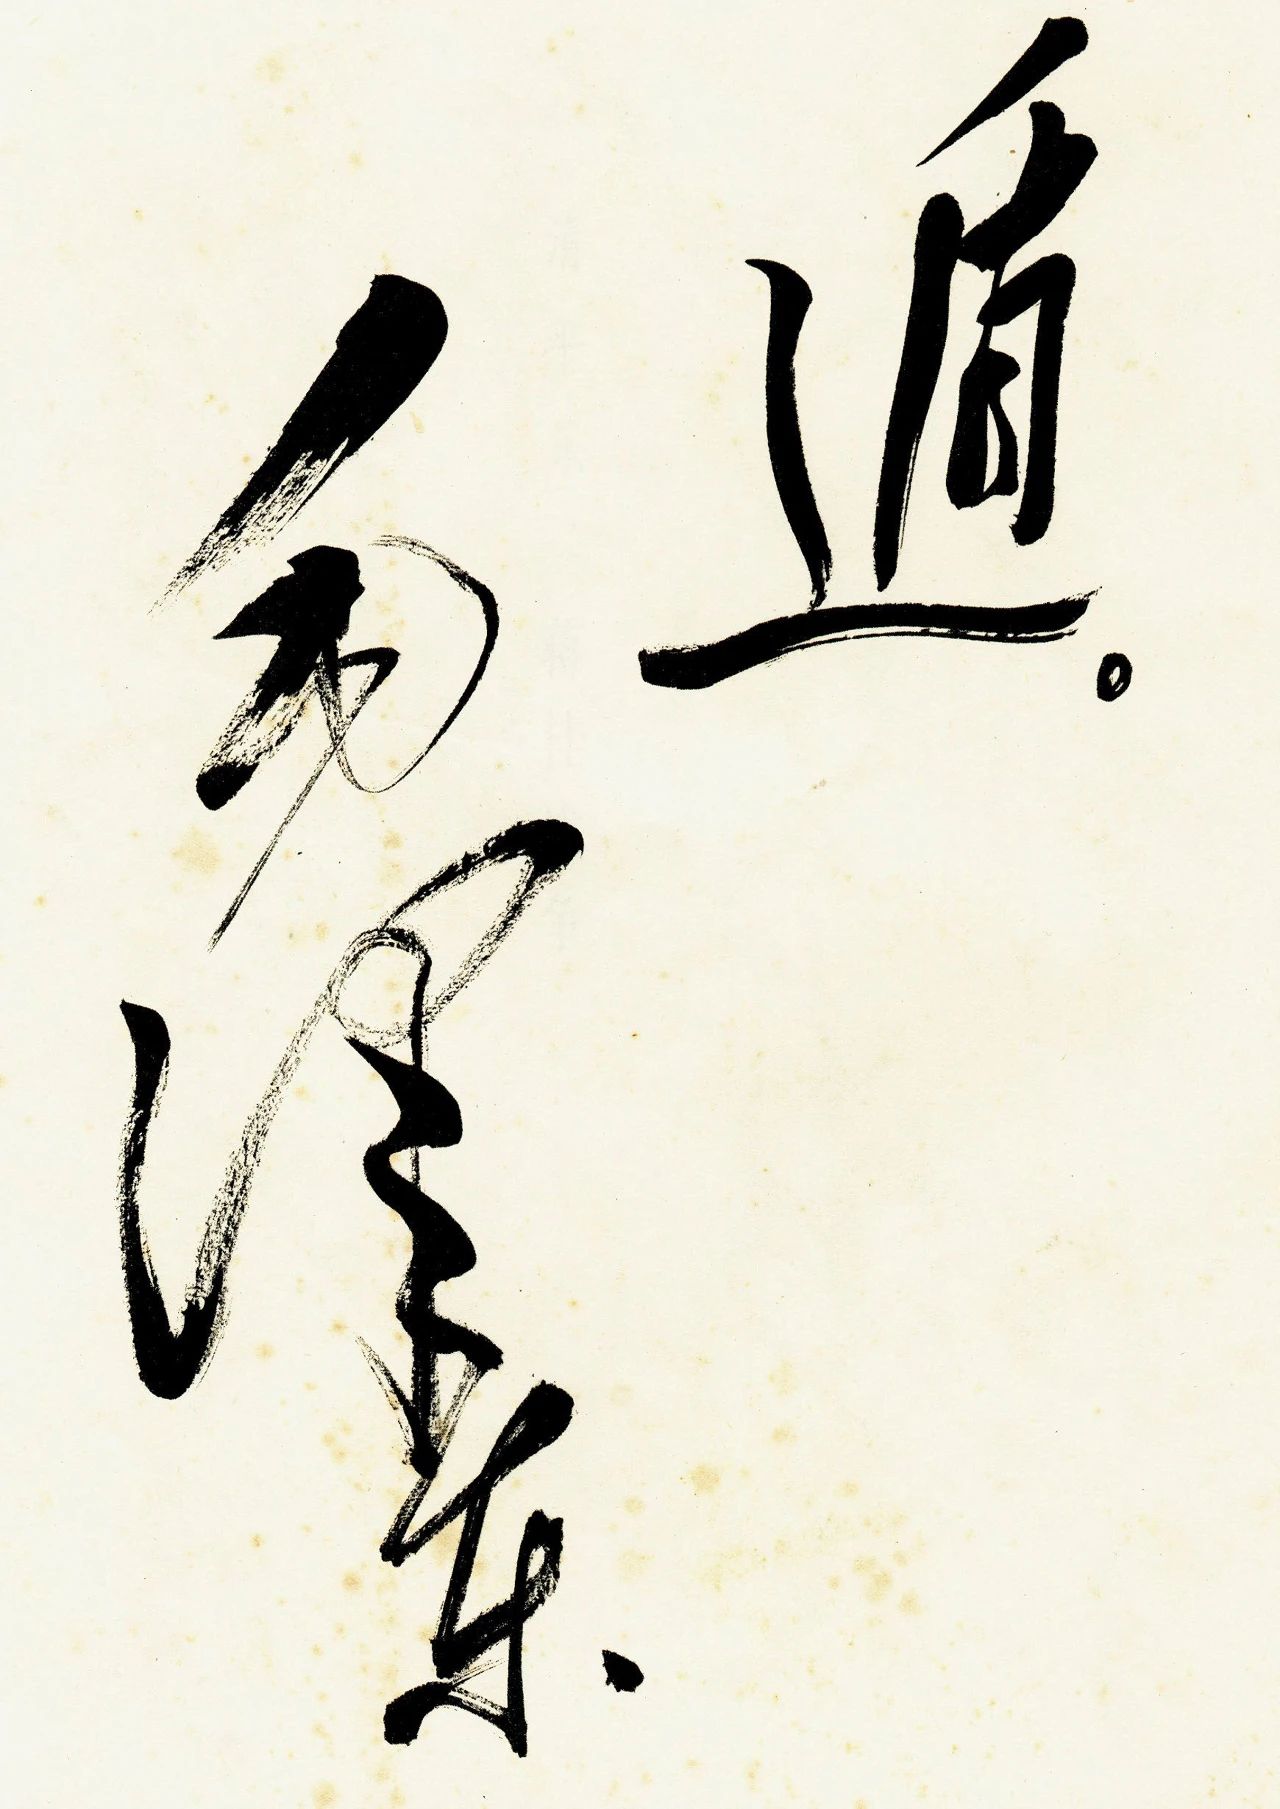 遁。
毛泽东